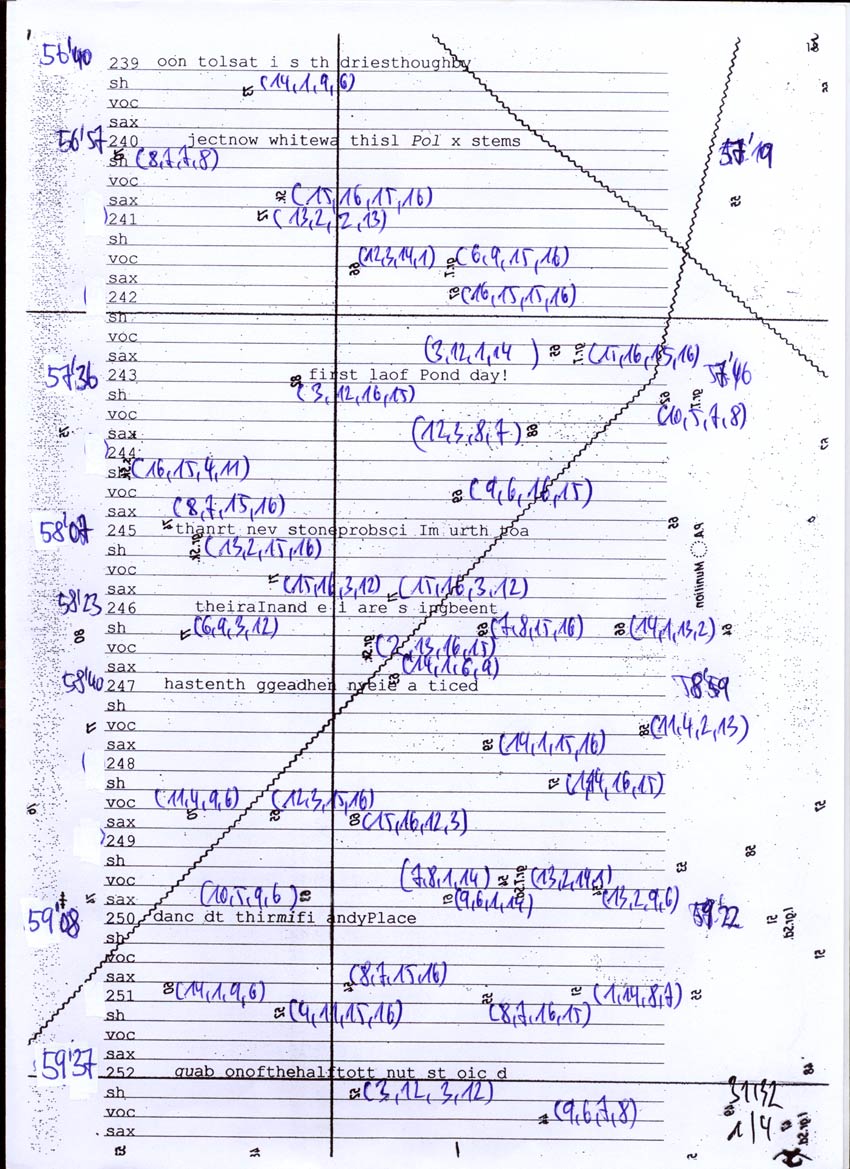 56'40 239 oón tolsat i s th driesthoughby
sh (14,1,9,6)
voc
sax
56'57 240 jectnow whitewa thisl Pol x stems 57'19
sh (8,7,7,8)
voc
sax (15,16,15,16)
241 (13,2,2,13)
sh
voc (12,3,14,1) (6,9,15,16)
sax
242 (16,15,15,16)
sh
voc
sax (3,12,1,14) (15,16,15,16)
57'36 243 first laof Pond day! 57'46
sh (3,12,16,15)
voc (10,5,7,8)
sax (12,3,8,7)
244
sh (16,15,4,11)
voc (9,6,16,15)
sax (8,7,15,16)
58'07 245 thanrt nev stoneprobsci Im urth toa
sh (13,2,15,16)
voc
sax (15,16,3,12) (15,16,3,12)
58'23 246 theiraInand e i are s ingbeent
sh (6,9,3,12) (7,8,15,16) (14,1,13,2)
voc (2,13,16,15)
sax (14,1,6,9)
58'40 247 hastenth ggeadhen nyeie a ticed 58'59
sh
voc (11,4,2,13)
sax (14,1,15,16)
248
sh (1,14,16,15)
voc (11,4,9,6) (12,3,15,16)
sax (15,16,12,3)
249
sh
voc (7,8,1,14) (13,2,14,1)
sax (10,5,9,6) (9,6,1,14) (13,2,9,6)
59'08 250 danc dt thirmifi andyPlace 59'22
sh
voc
sax (8,7,15,16)
251 (14,1,9,6) (1,14,8,7)
sh (4,11,15,16) (8,7,16,15)
voc
sax
59'37 252 quab onofthehalftott nut st oic d
sh (3,12,3,12) 31/32
voc (9,6,7,8) 1/4
sax